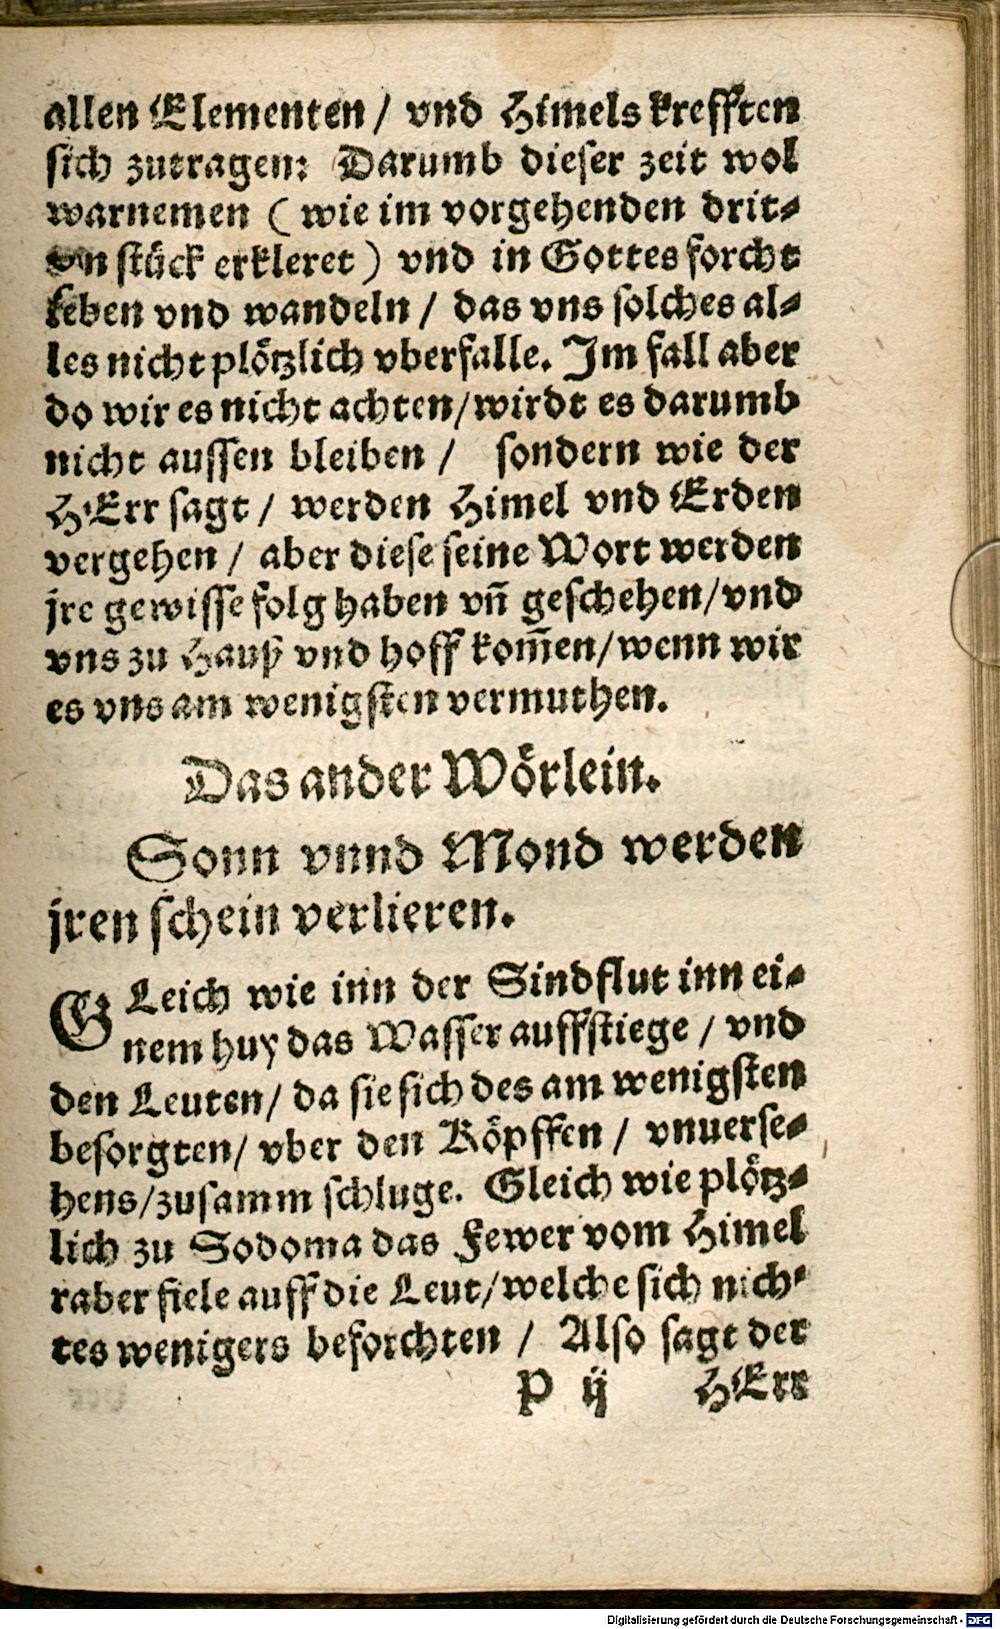 allen Elementen / vnd Himels krefften
sich zutragen: Darumb dieser zeit wol
warnemen ( wie im vorgehenden drit⸗
ten stück erkleret ) vnd in Gottes forcht
leben vnd wandeln / das vns solches al⸗
les nicht plötzlich vberfalle. Im fall aber
do wir es nicht achten/wirdt es darumb
nicht aussen bleiben / sondern wie der
HErr sagt / werden Himel vnd Erden
vergehen / aber diese seine Wort werden
jre gewisse folg haben vn̄ geschehen/vnd
vns zu Hauß vnd hoff kom̄en/wenn wir
es vns am wenigsten vermuthen.
Das ander Wörlein.
Sonn vnnd Mond werden
jren schein verlieren.
GLeich wie inn der Sindflut inn ei⸗
nem huy das Wasser auffstiege / vnd
den Leuten/ da sie sich des am wenigsten
besorgten/ vber den Köpffen / vnuerse⸗
hens/zusamm schluge. Gleich wie plötz⸗
lich zu Sodoma das Fewer vom Himel
raber fiele auff die Leut/welche sich nich⸗
tes wenigers beforchten / Also sagt der
P ij HErr
Digitalisierung gefördert durch die Deutsche Forschungsgemeinschaft - DFG